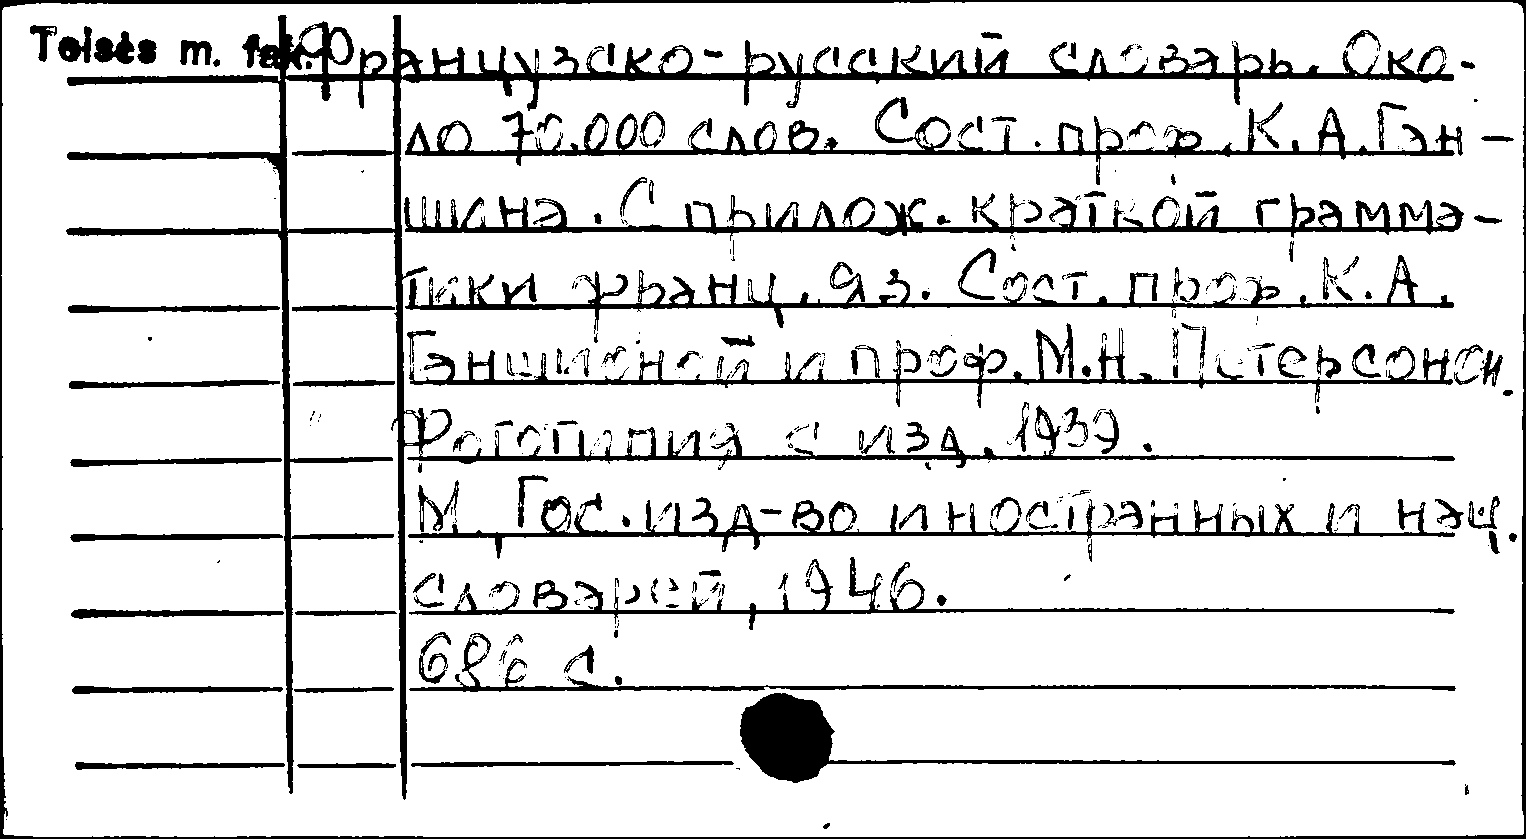 Teisės m. fak. Французско-русский словарь. Око-
ло 70.000 слов. Сост. проф. К. А. Ган-
шина. С прилож. краткой грамма-
тики франц. яз. Сост. проф. К. А.
Ганшиной и проф. М. Н. Петерсоном.
Фототипия с изд. 1939.
М., Гос. изд-во иностранных и нац.
словарей, 1946.
686 с.